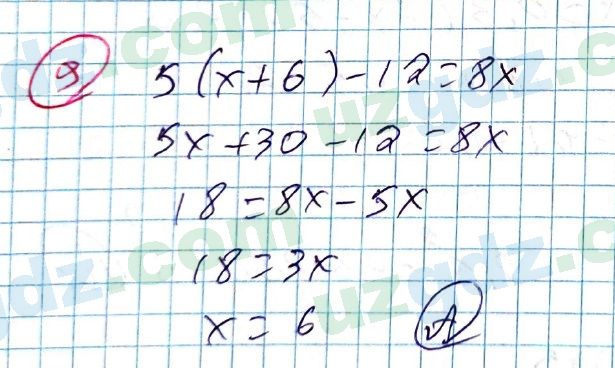 9 5(x+6)-12=8x
5x+30-12=8x
18=8x-5x
18=3x
x=6 A
uzgdz.com